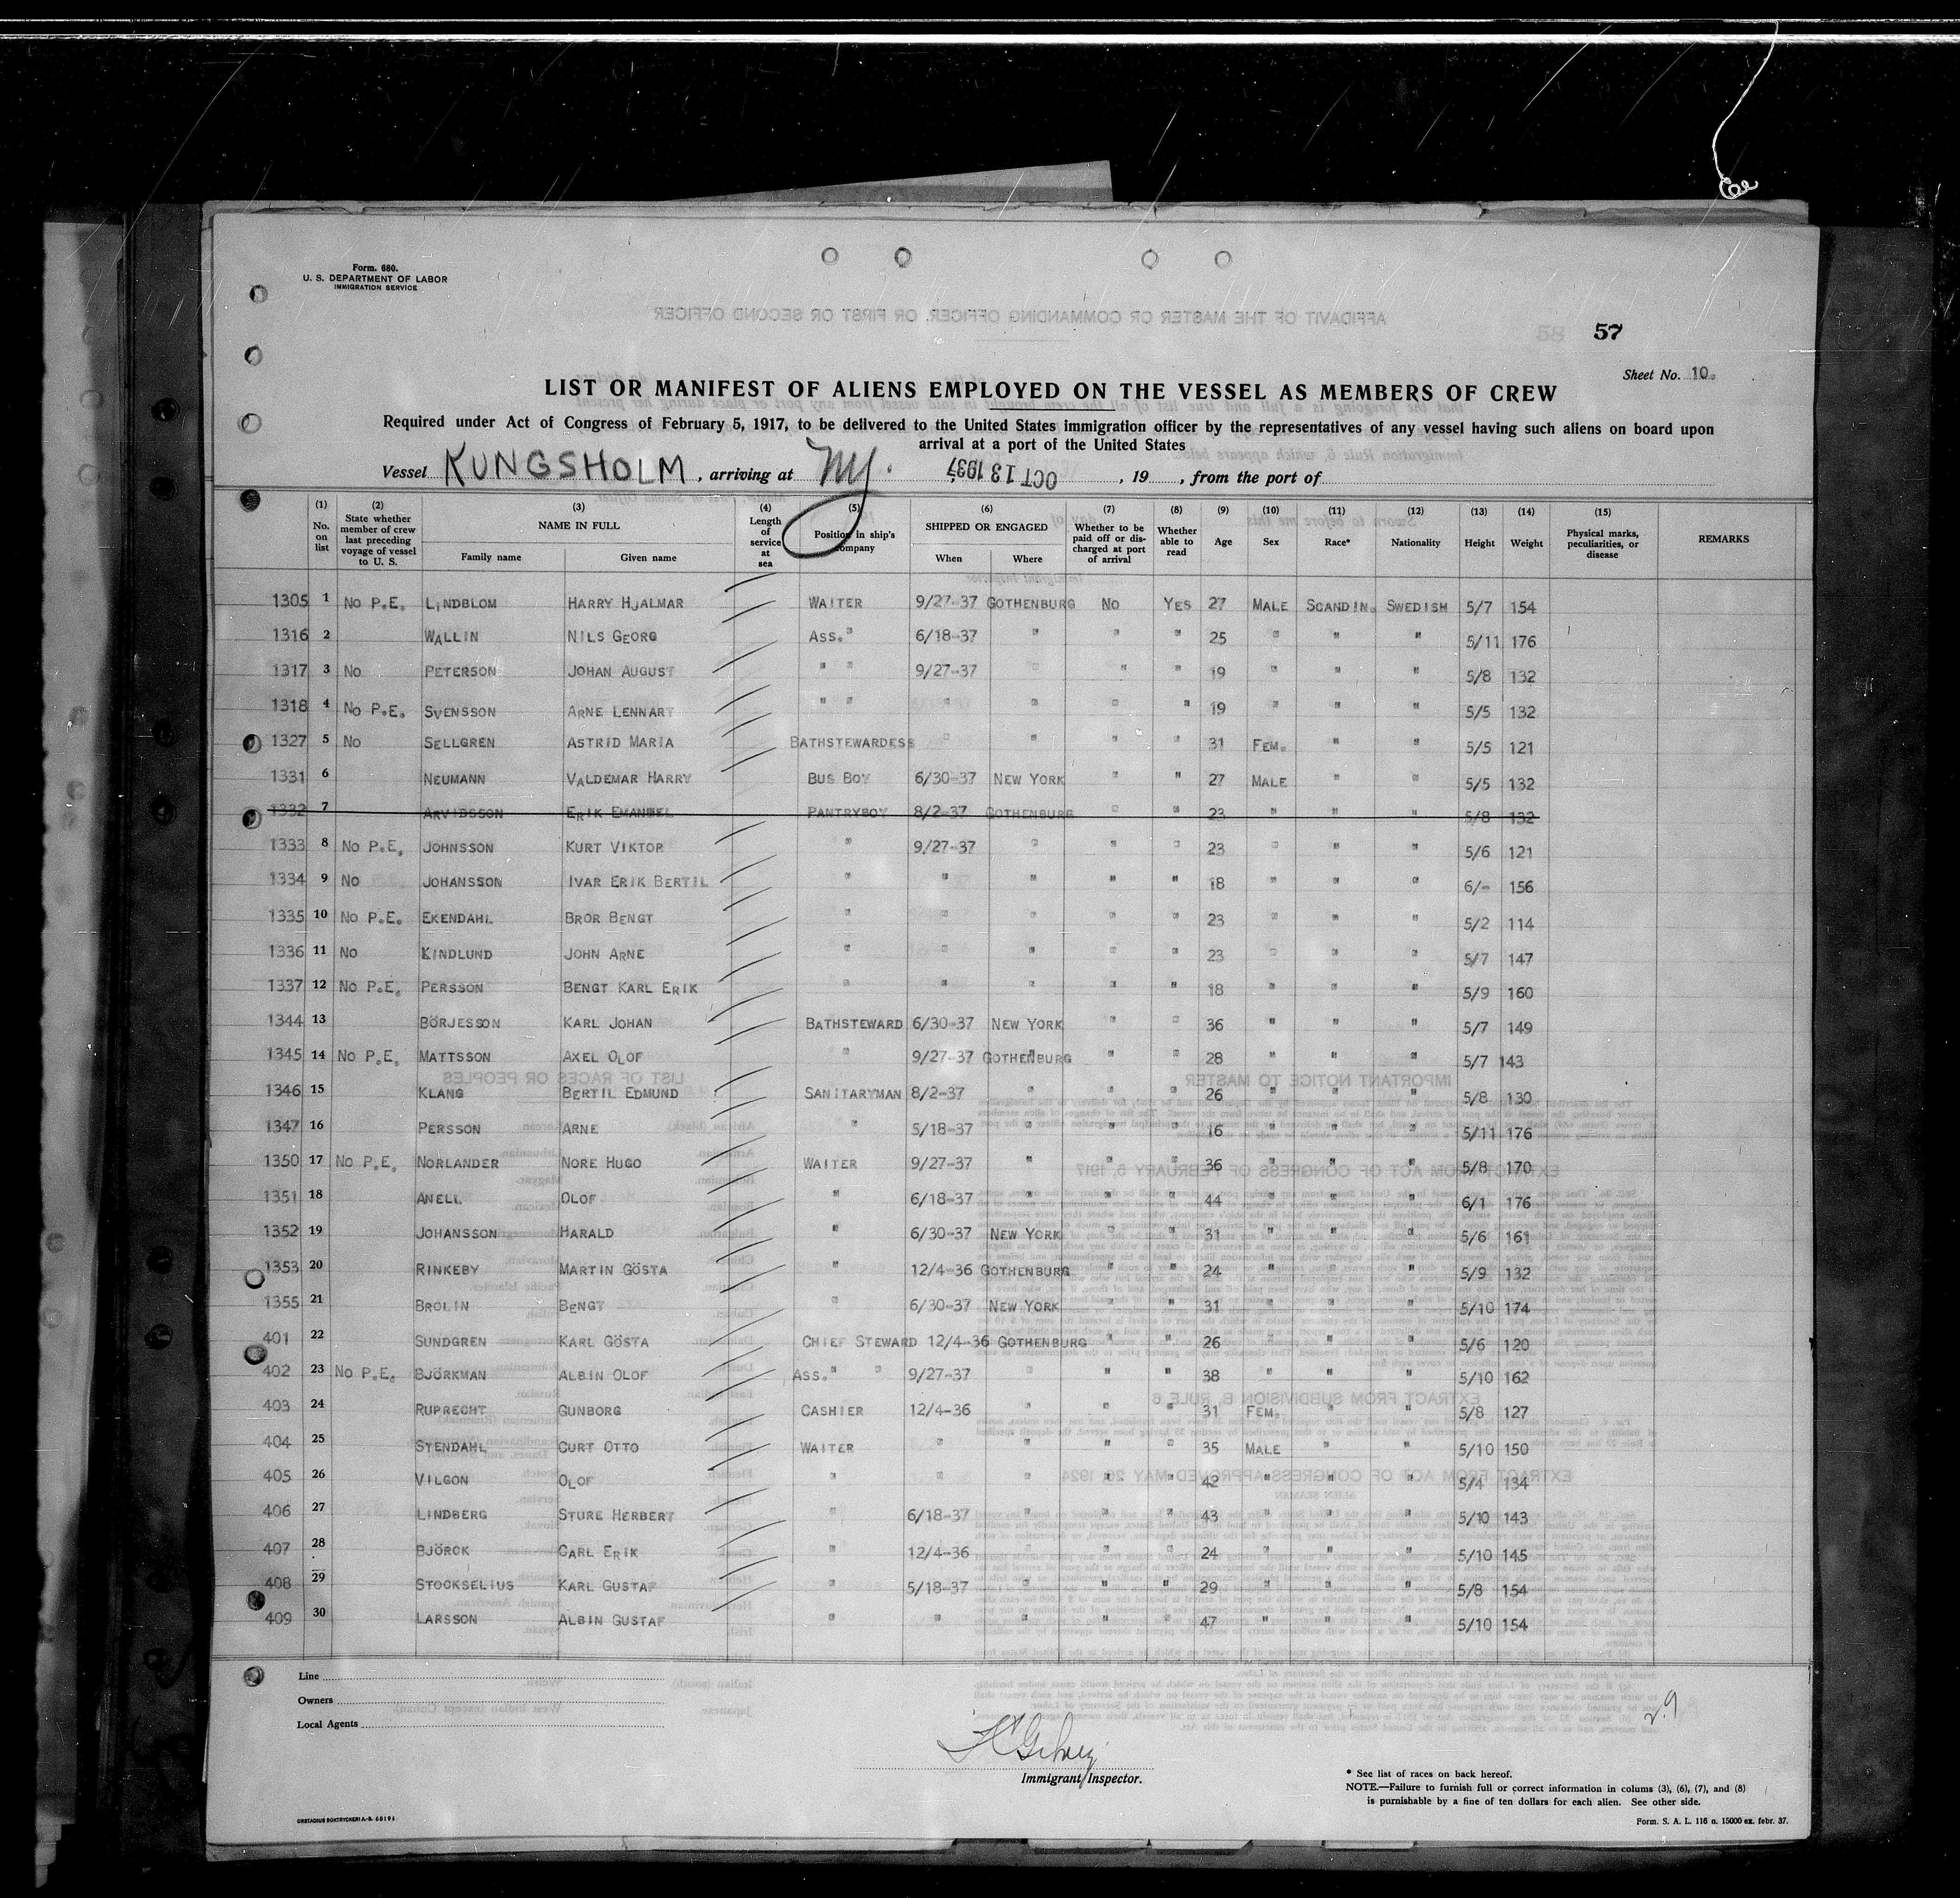 Form. 680.
U. S. DEPARTMENT OF LABOR
IMMIGRATION SERVICE
57
Sheet No. 10.
LIST OR MANIFEST OF ALIENS EMPLOYED ON THE VESSEL AS MEMBERS OF CREW
Required under Act of Congress of February 5, 1917, to be delivered to the United States immigration officer by the representatives of any vessel having such aliens on board upon
arrival at a port of the United States
Vessel KUNGSHOLM, arriving at NY. OCT 13 1937, 19 , from the port of
(1) No. on list (2) State whether member of crew last preceding voyage of vessel to U. S. (3) NAME IN FULL Family name Given name (4) Length of service at sea (5) Position in ship's company (6) SHIPPED OR ENGAGED When Where (7) Whether to be paid off or discharged at port of arrival (8) Whether able to read (9) Age (10) Sex (11) Race* (12) Nationality (13) Height (14) Weight (15) Physical marks, peculiarities, or disease REMARKS
1305 1 No P.E. LINDBLOM HARRY HJALMAR WAITER 9/27-37 GOTHENBURG No YES 27 MALE SCANDIN. SWEDISH 5/7 154
1316 2 WALLIN NILS GEORG ASS." 6/18-37 " " " 25 " " " 5/11 176
1317 3 No PETERSON JOHAN AUGUST " " 9/27-37 " " " 19 " " " 5/8 132
1318 4 No P.E. SVENSSON ARNE LENNART " " " " " " 19 " " " 5/5 132
1327 5 No SELLGREN ASTRID MARIA BATHSTEWARDESS " " " " 31 FEM. " " 5/5 121
1331 6 NEUMANN VALDEMAR HARRY BUS BOY 6/30-37 NEW YORK " " 27 MALE " " 5/5 132
1332 7 ARVIDSSON ERIK EMANUEL PANTRYBOY 8/2-37 GOTHENBURG " " 23 " " " 5/8 132
1333 8 No P.E. JOHNSSON KURT VIKTOR " 9/27-37 " " " 23 " " " 5/6 121
1334 9 No JOHANSSON IVAR ERIK BERTIL " " " " " 18 " " " 6/- 156
1335 10 No P.E. EKENDAHL BROR BENGT " " " " " 23 " " " 5/2 114
1336 11 No KINDLUND JOHN ARNE " " " " " 23 " " " 5/7 147
1337 12 No P.E. PERSSON BENGT KARL ERIK " " " " " 18 " " " 5/9 160
1344 13 BÖRJESSON KARL JOHAN BATHSTEWARD 6/30-37 NEW YORK " " 36 " " " 5/7 149
1345 14 No P.E. MATTSSON AXEL OLOF " 9/27-37 GOTHENBURG " " 28 " " " 5/7 143
1346 15 KLANG BERTIL EDMUND SANITARYMAN 8/2-37 " " " 26 " " " 5/8 130
1347 16 PERSSON ARNE " 5/18-37 " " " 16 " " " 5/11 176
1350 17 No P.E. NORLANDER NORE HUGO WAITER 9/27-37 " " " 36 " " " 5/8 170
1351 18 ANELL OLOF " 6/18-37 " " " 44 " " " 6/1 176
1352 19 JOHANSSON HARALD " 6/30-37 NEW YORK " " 31 " " " 5/6 161
1353 20 RINKEBY MARTIN GÖSTA " 12/4-36 GOTHENBURG " " 24 " " " 5/9 132
1355 21 BROLIN BENGT " 6/30-37 NEW YORK " " 31 " " " 5/10 174
401 22 SUNDGREN KARL GÖSTA CHIEF STEWARD 12/4-36 GOTHENBURG " " 26 " " " 5/6 120
402 23 No P.E. BJÖRKMAN ALBIN OLOF ASS." " 9/27-37 " " " 38 " " " 5/10 162
403 24 RUPRECHT GUNBORG CASHIER 12/4-36 " " " 31 FEM. " " 5/8 127
404 25 STENDAHL CURT OTTO WAITER " " " " 35 MALE " " 5/10 150
405 26 VILGON OLOF " " " " " 42 " " " 5/4 134
406 27 LINDBERG STURE HERBERT " 6/18-37 " " " 43 " " " 5/10 143
407 28 BJÖRCK CARL ERIK " 12/4-36 " " " 24 " " " 5/10 145
408 29 STOCKSELIUS KARL GUSTAF " 5/18-37 " " " 29 " " " 5/8 154
409 30 LARSSON ALBIN GUSTAF " " " " " 47 " " " 5/10 154
Line
Owners
Local Agents
29
Immigrant Inspector.
* See list of races on back hereof.
NOTE.—Failure to furnish full or correct information in colums (3), (6), (7), and (8)
is purnishable by a fine of ten dollars for each alien. See other side.
Form. S. A. L. 116 n. 15000 ex. febr. 37.